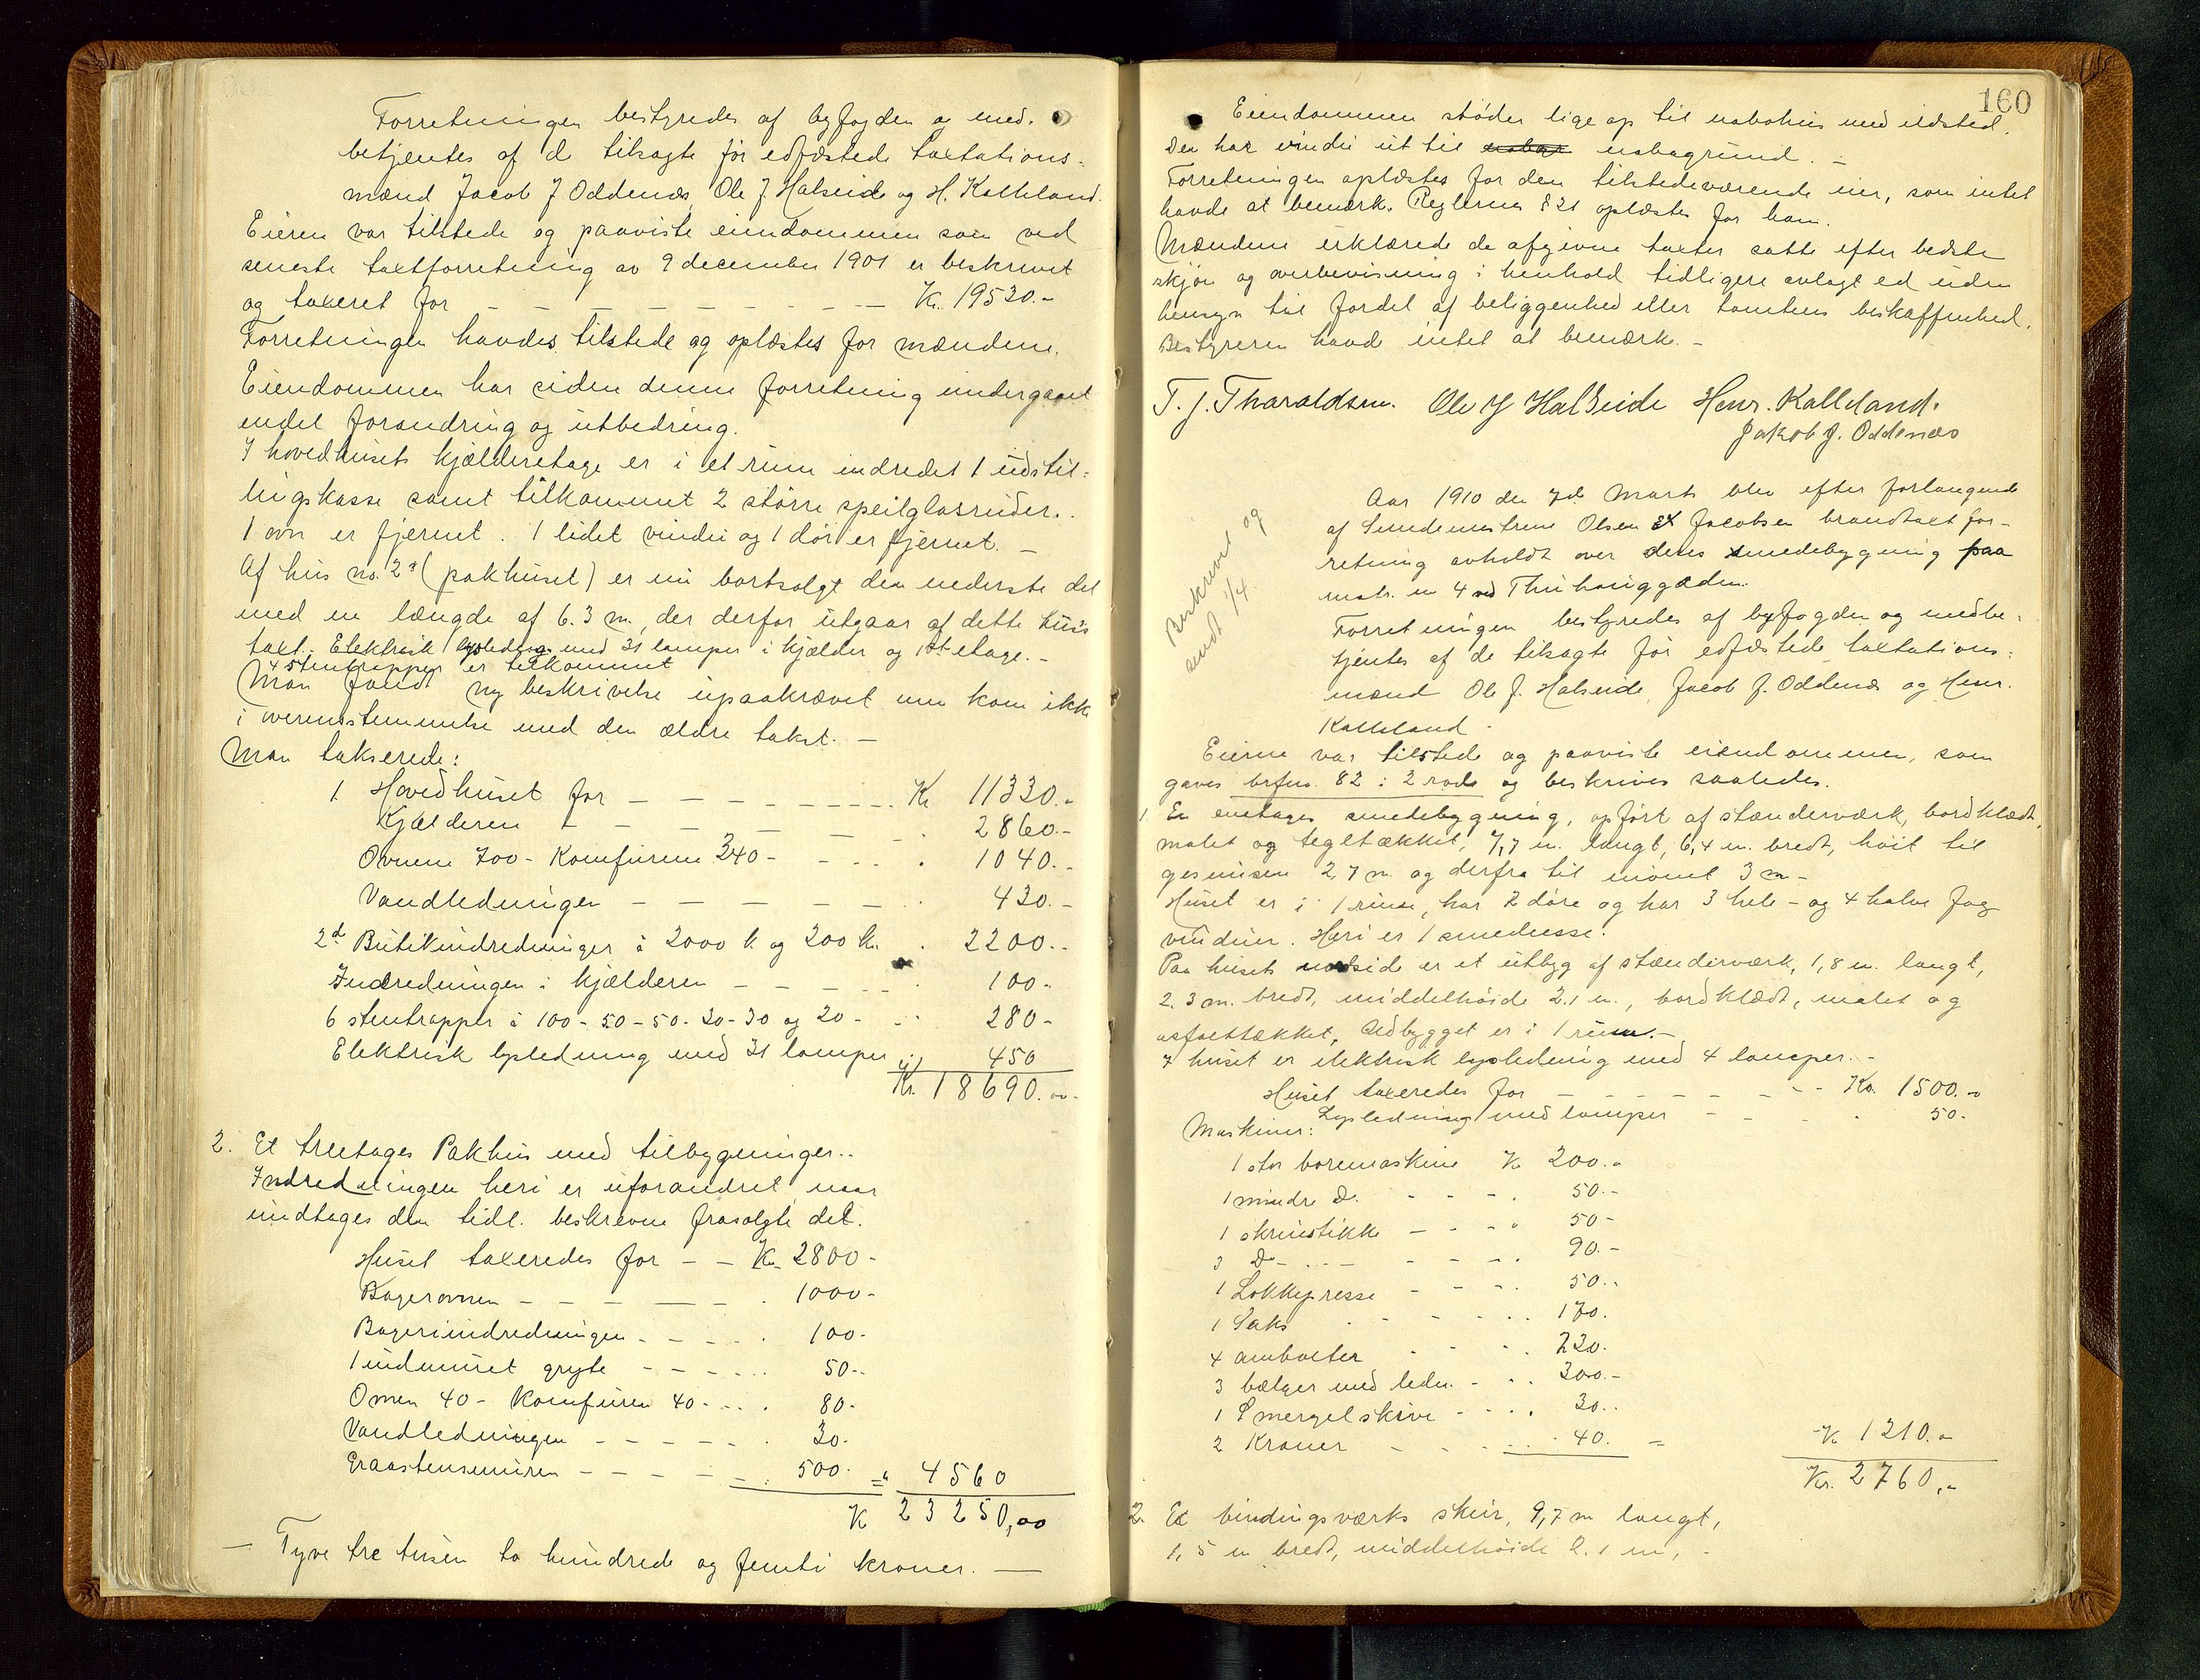 Forretningen bestyredes af byfogden og med-
betjentes af de tilsagte før edfæstede taxtations-
mænd Jacob J Oddenæs, Ole J. Halseide og H. Kalleland.
Eieren var tilstede og paaviste eiendommen som ved
seneste taxtforretning av 9 december 1901 er beskrevet
og taxeret for — — — — — — Kr. 19530.-
Forretningen havdes tilstede og oplæstes for mændene.
Eiendommen har siden denne forretning undergaaet
endel forandring og utbedring.
I hovedhusets kjælderetage er i et rum indredet 1 udstil-
lingskasse samt tilkommet 2 større speilglasruder.
1 ovn er fjernet. 1 lidet vindu og 1 dør er fjernet. —
Af hus no. 2 (pakhuset) er nu bortsolgt den nederste del
med en længde af 6.3 m, der derfor utgaar af dette hus's
taxt. Elektrisk lysledning med 31 lamper i kjælder og 1st etage. -
4 stentrapper er tilkommet
Man fandt ny beskrivelse upaakrævet men kom ikke
i overensstemmelse med den ældre takst. —
Man takserede:
1. Hovedhuset for — — — — — Kr 11330.-
Kjælderen — — — — 2860.-
Ovnene 700- Komfurene 340- - - - 1040.-
Vandledningen — — — — — 430.-
2de Butikindredninger à 2000 k og 200 kr. 2200.-
Indredningen i kjælderen — — — — 100.-
6 stentrapper à 100-50-50-30-30 og 20- - 280-
Elektrisk lysledning med 31 lamper 450
Kr. 18690.-
2. Et treetages Pakhus med tilbygninger..
Indredningen heri er uforandret naar
undtages den tidl. beskrevne frasolgte del.
Huset taxeredes for — — Kr. 2800-
Bagerovnen — — — — 1000-
Bagerindredningen - - - 100-
1 indmuret gryte - - - - 50-
Ovnen 40- Komfuren 40- - - 80-
Vandledningen - - - - 30-
Graastensmuren - - - - 500- = 4560
K 23250,00
— Tyve tre tusen to hundrede og femti kroner. —
160
Eiendommen støder lige op til nabohus med ildsted.
Den har vindu ut til nabogrund. -
Forretningen oplæstes for den tilstedeværende eier, som intet
havde at bemerk. Reglerne § 21 oplæstes for ham.
Mændene erklærede de afgivne taxter satte efter bedste
skjøn og overbevisning i henhold tidligere avlagt ed uden
hensyn til fordel af beliggenhed eller tomtens beskaffenhed.
Bestyreren havde intet at bemærk. -
T. J. Tharaldsen. Ole J Halseide Henr. Kalleland.
Jakob J. Oddenæs
Beskrevet og
sendt 1/4
Aar 1910 den 7de Marts blev efter forlangende
af Smedemestrene Olsen & Jacobsen brandtaxtfor-
retning avholdt over deres smedebygning paa
matr. no 4 ved Thuhauggaden.
Forretningen bestyredes af byfogden og medbe-
tjentes af de tilsagte før edfæstede taxtations-
mænd Ole J. Halseide, Jacob J. Oddenæs og Henr.
Kalleland -
Eierne var tilstede og paaviste eiendommen, som
gaves brfno. 82 i 2 rode og beskrives saaledes.
1. En enetages smedebygning, opført af stænderværk, bordklædt,
malet og tegltækket, 7,7 m. langt, 6,4 m. bredt, høit til
gesimsen 2,7 m. og derfra til mønet 3 m -
Huset er i 1 rum, har 2 døre og har 3 hele - og 4 halve fag
vinduer. Heri er 1 smedeesse.
Paa husets nordside er et utbyg af stænderværk, 1,8 m. langt,
2.3 m. bredt, middelhøide 2.1 m., bordklædt, malet og
asfalttækket, Udbygget er i 1 rum. -
I huset er elektrisk lysledning med 4 lamper. -
Huset taxeredes for — — — — Kr. 1500.-
Lysledning med lamper - - - 50.-
Maskiner:
1 stor boremaskine Kr 200.-
1 mindre Do. - - - 50.-
1 skruestikke - - - 50-
3 Do - - - - 90.-
1 Lokkepresse - - - 50.-
1 Saks - - - - 170.
4 ambolter - - - 230.
3 bælger med leder. - - - 300.-
1 Smergelskive - - - - 30..
2 Kraner - - - 40. = K 1210.-
Kr. 2760.-
2. Et bindingsværks skur, 9,7 m langt,
1,5 m bredt, middelhøide 2.1 m, -